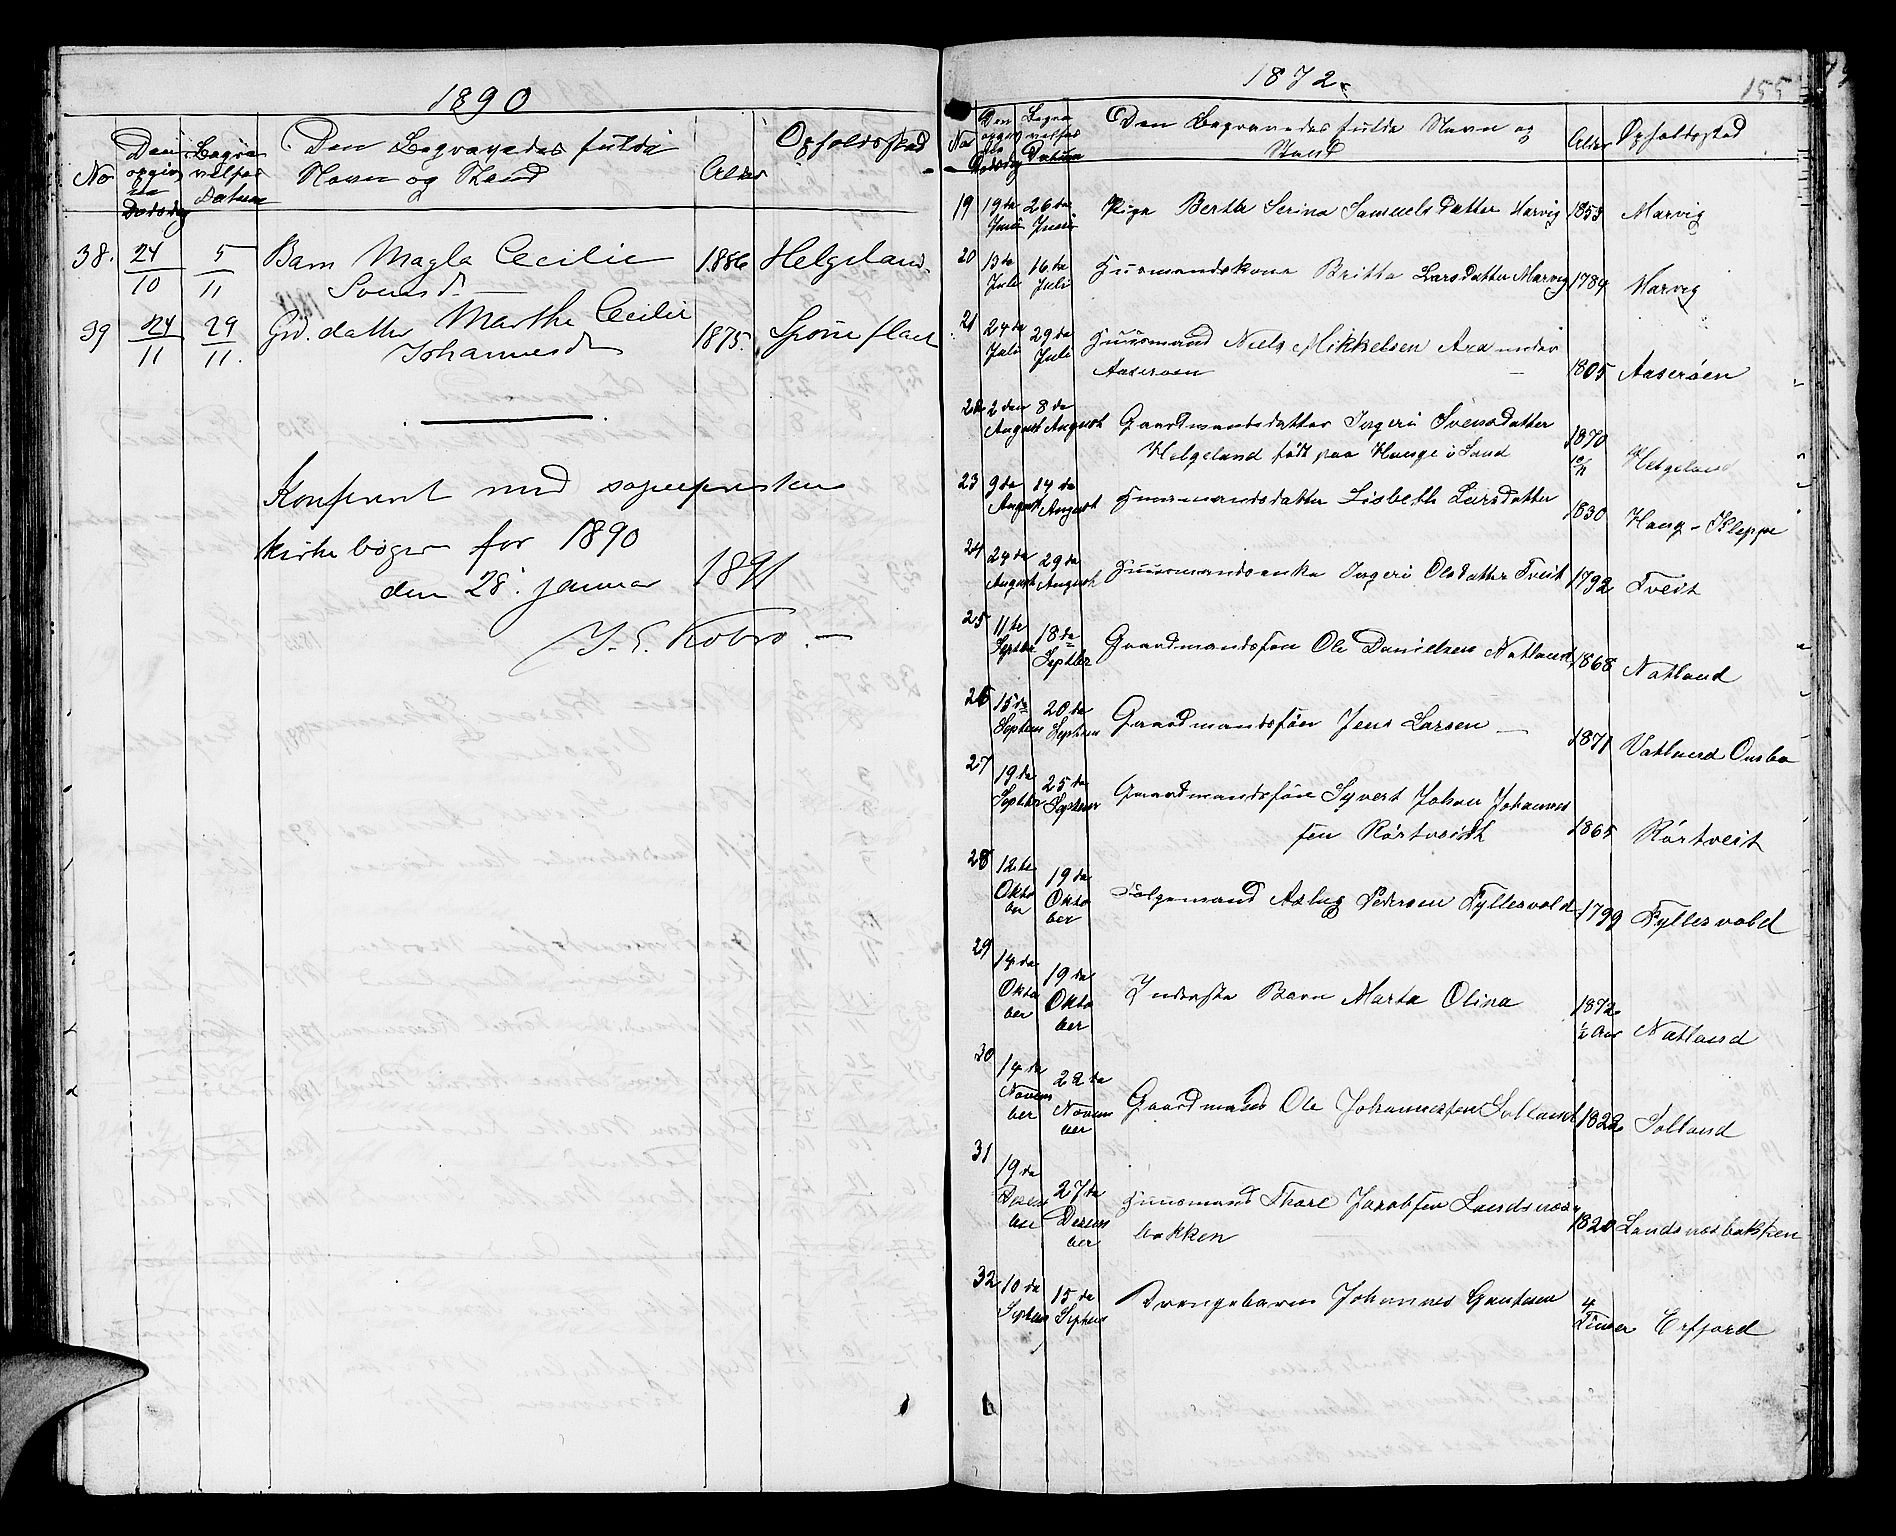 1890
No
Den opgivne Dødsdag
Begravelses Datum
Den Begravedes fulde Navn og Stand
Alder
Opholdssted
38. 24/10 5/11 Barn Magla Cecilie 1886 Helgeland
Svensd.
39 24/11 29/11. Grd. datter Marthe Cecilie 1875.
Johannesd
Konferert med sognepresten
kirkebøger for 1890
den 28. januar 1891
J. E. Kobro.
1872.
155
No
Den opgivne Dødsdag
Begravelses Datum
Den Begravedes fulde Navn og
Stand
Alder
Opholdssted
19 19da Juni 26da Juni Pige Berthe Serina Samuelsdatter Marvig 1853 Marvig
20 13da Juli 16da Juli Huusmandskone Britte Larsdatter Marvig 1789 Marvig
21 24da Juli 29da Juli Huusmand Niels Mikkelsen Ara under
Aaserøen 1805 Aaserøen
22 2den August 8da August Gaardmandsdatter Ingeri Svensdatter
Helgeland født paa Hauge i Sand 1870 Helgeland
23 9da August 14da August Huusmandsdatter Lisbeth Larsdatter 1830 Haug - Kleppe
24 24da August 29da August Huusmandsenke Ingeri Olsdatter Tveit 1792 Tveit
25 11te Septbr 18da Septbr Gaardmandssøn Ole Danielsen Natland 1868 Natland
26 15da Septem 20da Septem Gaardmandssøn Jens Larsen 1871 Vatland Ousbo
27 19da Septbr 25da Septem Gaardmandssøn Syvert Johan Johannes
sen Rørtveidt 1865 Rørtveit
28 12te Oktober 19da Oktober Folgemand Aslag Pedersen Fyllesvold 1799 Fyllesvold
29 14da Oktober 19da Oktober Inderste Barn Marta Olina 1872 ½ Aar Natland
30 14da November 22da November Gaardmand Ole Johannessen Solland 1822 Solland
31 19da Desember 27da Desember Huusmand Thore Jacobsen Landsnæs
bakken 1820 Landsnæsbakken
32 10da Septem 15da Septem Drengebarn Johannes Gautesen 4 Timer Erfjord